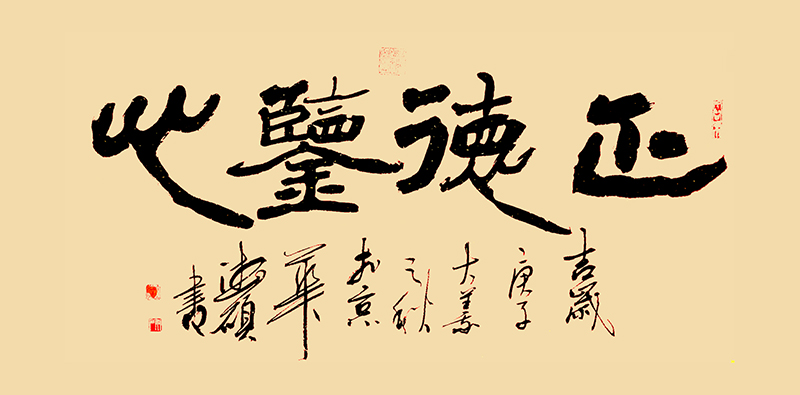 正德鑒之
吉歲
庚子
大美
之秋
於京
華
書